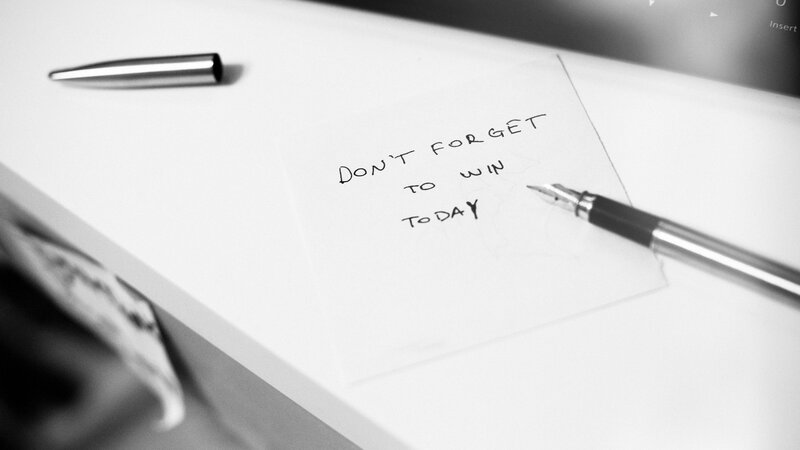 Insert
DON'T FORGET
TO WIN
TODAY